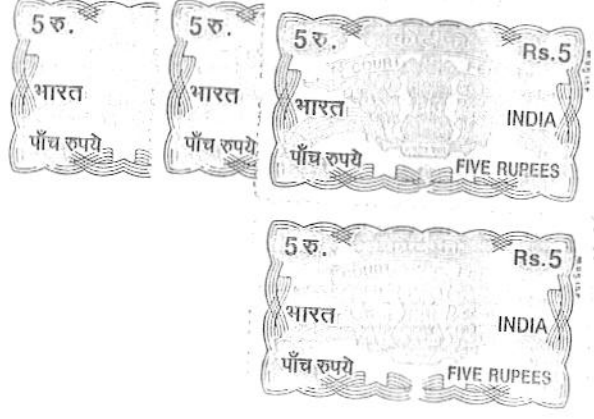 5 रु.
भारत
पाँच रुपये
5 रु.
भारत
पाँच रुपये
5 रु. Rs.5
COURT FE
भारत INDIA
पाँच रुपये FIVE RUPEES
5 रु. Rs.5
भारत INDIA
पाँच रुपये FIVE RUPEES